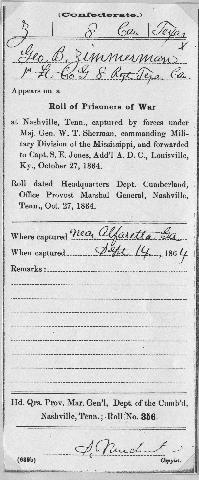 (Confederate.)
Z 8 Cav Texas
Geo. B. Zimmerman
Lt. Co G 8 Regt Texas Cav.
Appears on a
Roll of Prisoners of War
at Nashville, Tenn., captured by forces under
Maj. Gen. W. T. Sherman, commanding Mili-
tary Division of the Mississippi, and forwarded
to Capt. S. E. Jones, Add'l A. D. C., Louisville,
Ky., October 27, 1864.
Roll dated Headquarters Dept. Cumberland,
Office Provost Marshal General, Nashville,
Tenn., Oct. 27, 1864.
Where captured near Alfaretta Ga
When captured Sept 14, 1864
Remarks:
Hd. Qrs. Prov. Mar. Gen'l, Dept. of the Cumb'd,
Nashville, Tenn.; Roll No. 356.
(639b) Copyist.